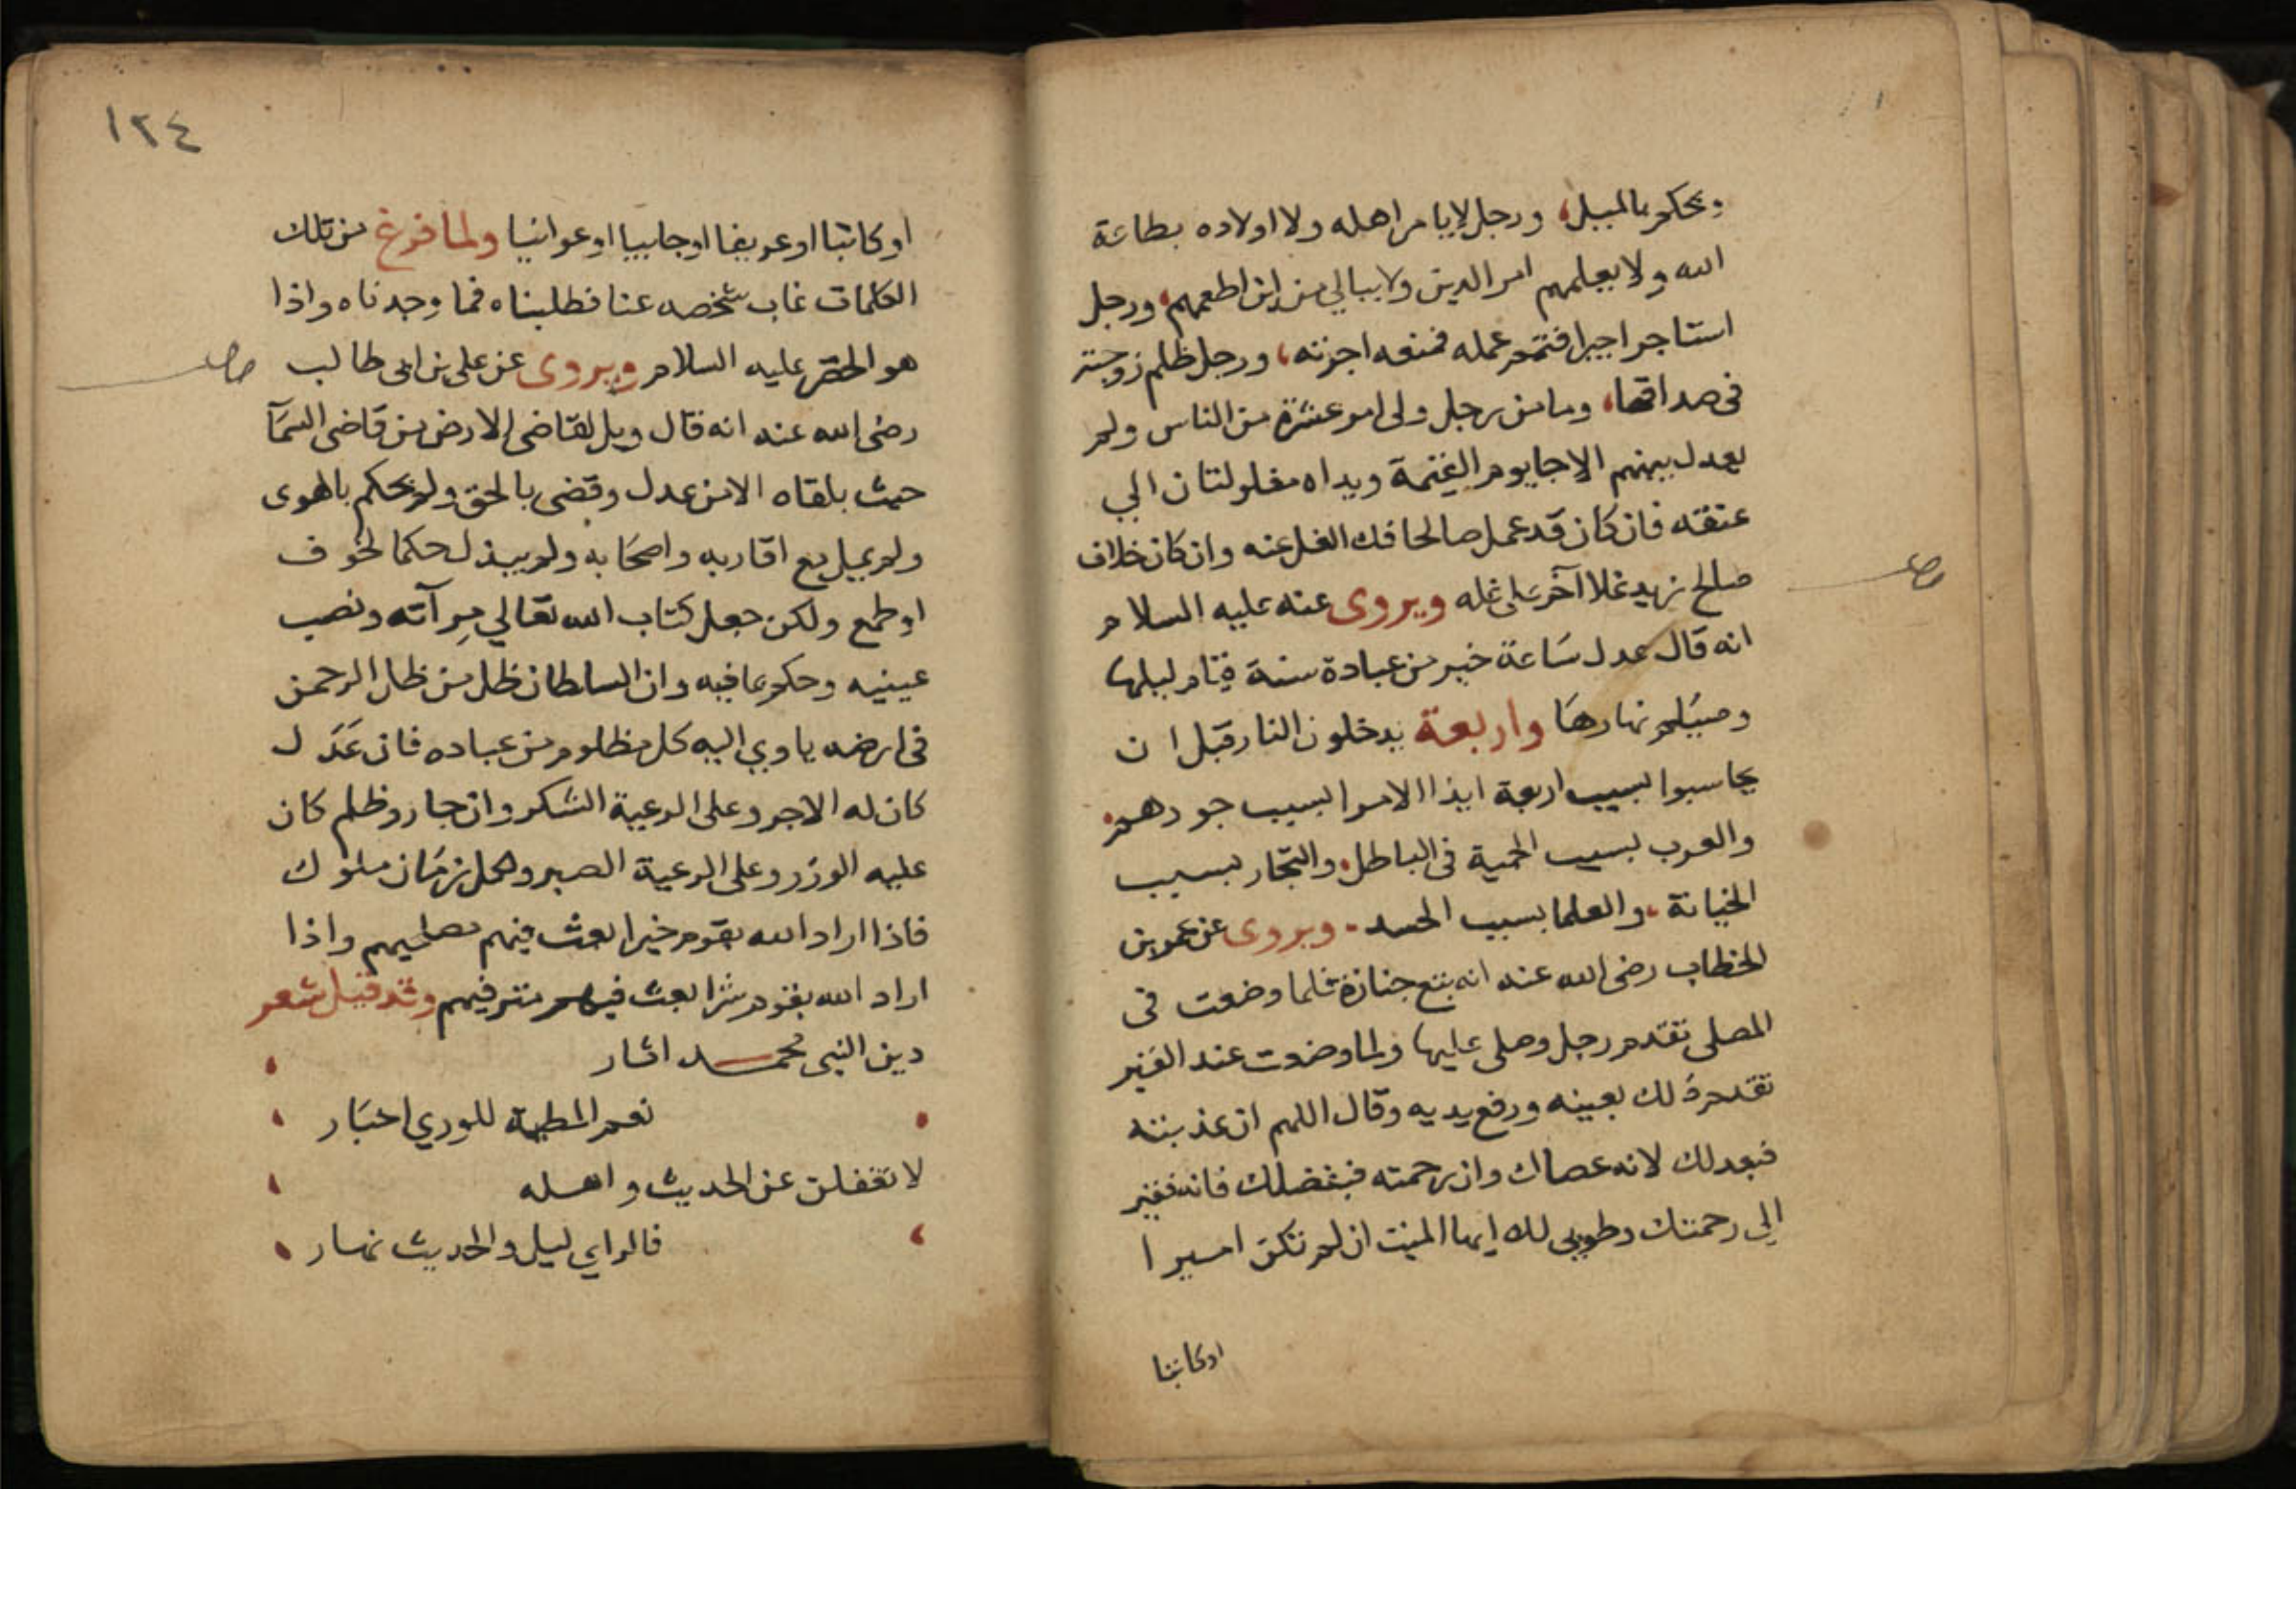 ويحكم بالميل، ورجل لا يامر اهله ولا اولاده بطاعة
الله ولا يعلمهم امر الدين ولا يبالي من اين اطعمهم، ورجل
استاجر اجيرا فتمم عمله فمنعه اجرته، ورجل ظلم زوجته
في صداقها، وما من رجل ولى امر عشرة من الناس ولم
يعدل بينهم الا جا يوم القيمة ويداه مغلولتان الي
عنقه فان كان قد عمل صالحا فك الغل عنه وان كان خلاف
صالح زيد غلا آخر على غله ويروى عنه عليه السلام
انه قال عدل ساعة خير من عبادة سنة قيام ليلها
وصيام نهارها واربعة يدخلون النار قبل ان
يحاسبوا بسبب اربعة ايذا الامرا بسبب جورهم،
والعرب بسبب الحمية في الباطل، والتجار بسبب
الخيانة، والعلما بسبب الحسد. ويروى عن عمر بن
الخطاب رضى الله عنه انه تبع جنازة فلما وضعت في
المصلى تقدم رجل وصلى عليها ولما وضعت عند القبر
تقدم ذلك بعينه ورفع يديه وقال اللهم ان عذبته
فبعدلك لانه عصاك وان رحمته فبفضلك فانه فقير
الى رحمتك وطوبى لك ايها الميت ان لم تكن اميرا
اوكاتبا
١٢٤
او كاتبا او عريفا او جابيا او عوانيا ولما فرغ من تلك
الكلمات غاب شخصه عنا فطلبناه فما وجدناه واذا
هو الخضر عليه السلام ويروى عن على بن ابى طالب
رضى الله عنه انه قال ويل لقاضى الارض من قاضى السمآ
حيث يلقاه الا من عدل وقضى بالحق ولم يحكم بالهوى
ولم يميل مع اقاربه واصحابه ولم يبذل حكما لخوف
او طمع ولكن جعل كتاب الله تعالي مرآته ونصب
عينيه وحكم بما فيه وان السلطان ظل من ظل الرحمن
في ارضه ياوي اليه كل مظلوم من عباده فان عدل
كان له الاجر وعلى الرعية الشكر وان جار وظلم كان
عليه الوزر وعلى الرعية الصبر ولكل زمان ملوك
فاذا اراد الله بقوم خيرا بعث فيهم مصلحيهم واذا
اراد الله بقوم شرا بعث فيهم مترفيهم وقد قيل شعر
دين النبى محمد اثار
نعم المطية للوري اخبار
لا تغفلن عن الحديث واهله
فالراي ليل والحديث نهار